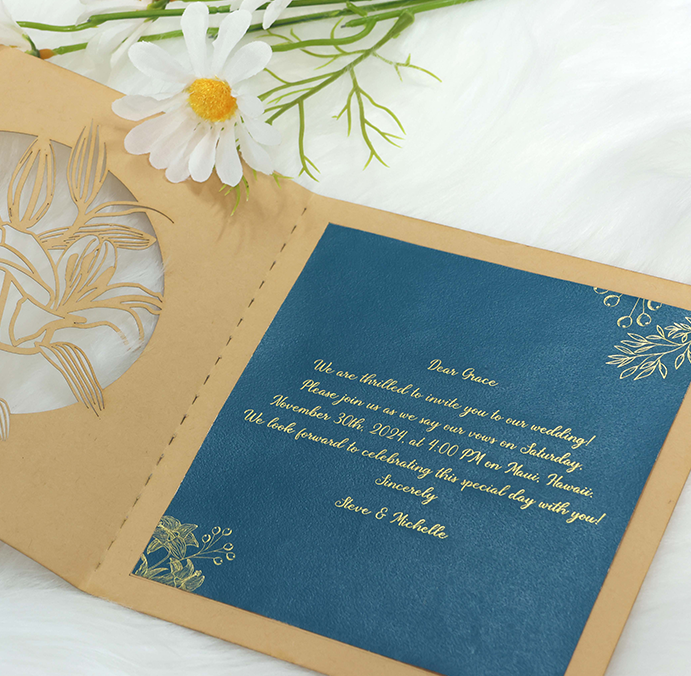 Dear Grace
We are thrilled to invite you to our wedding!
Please join us as we say our vows on Saturday,
November 30th, 2024, at 4:00 PM on Maui, Hawaii.
We look forward to celebrating this special day with you!
Sincerely
Steve & Michelle